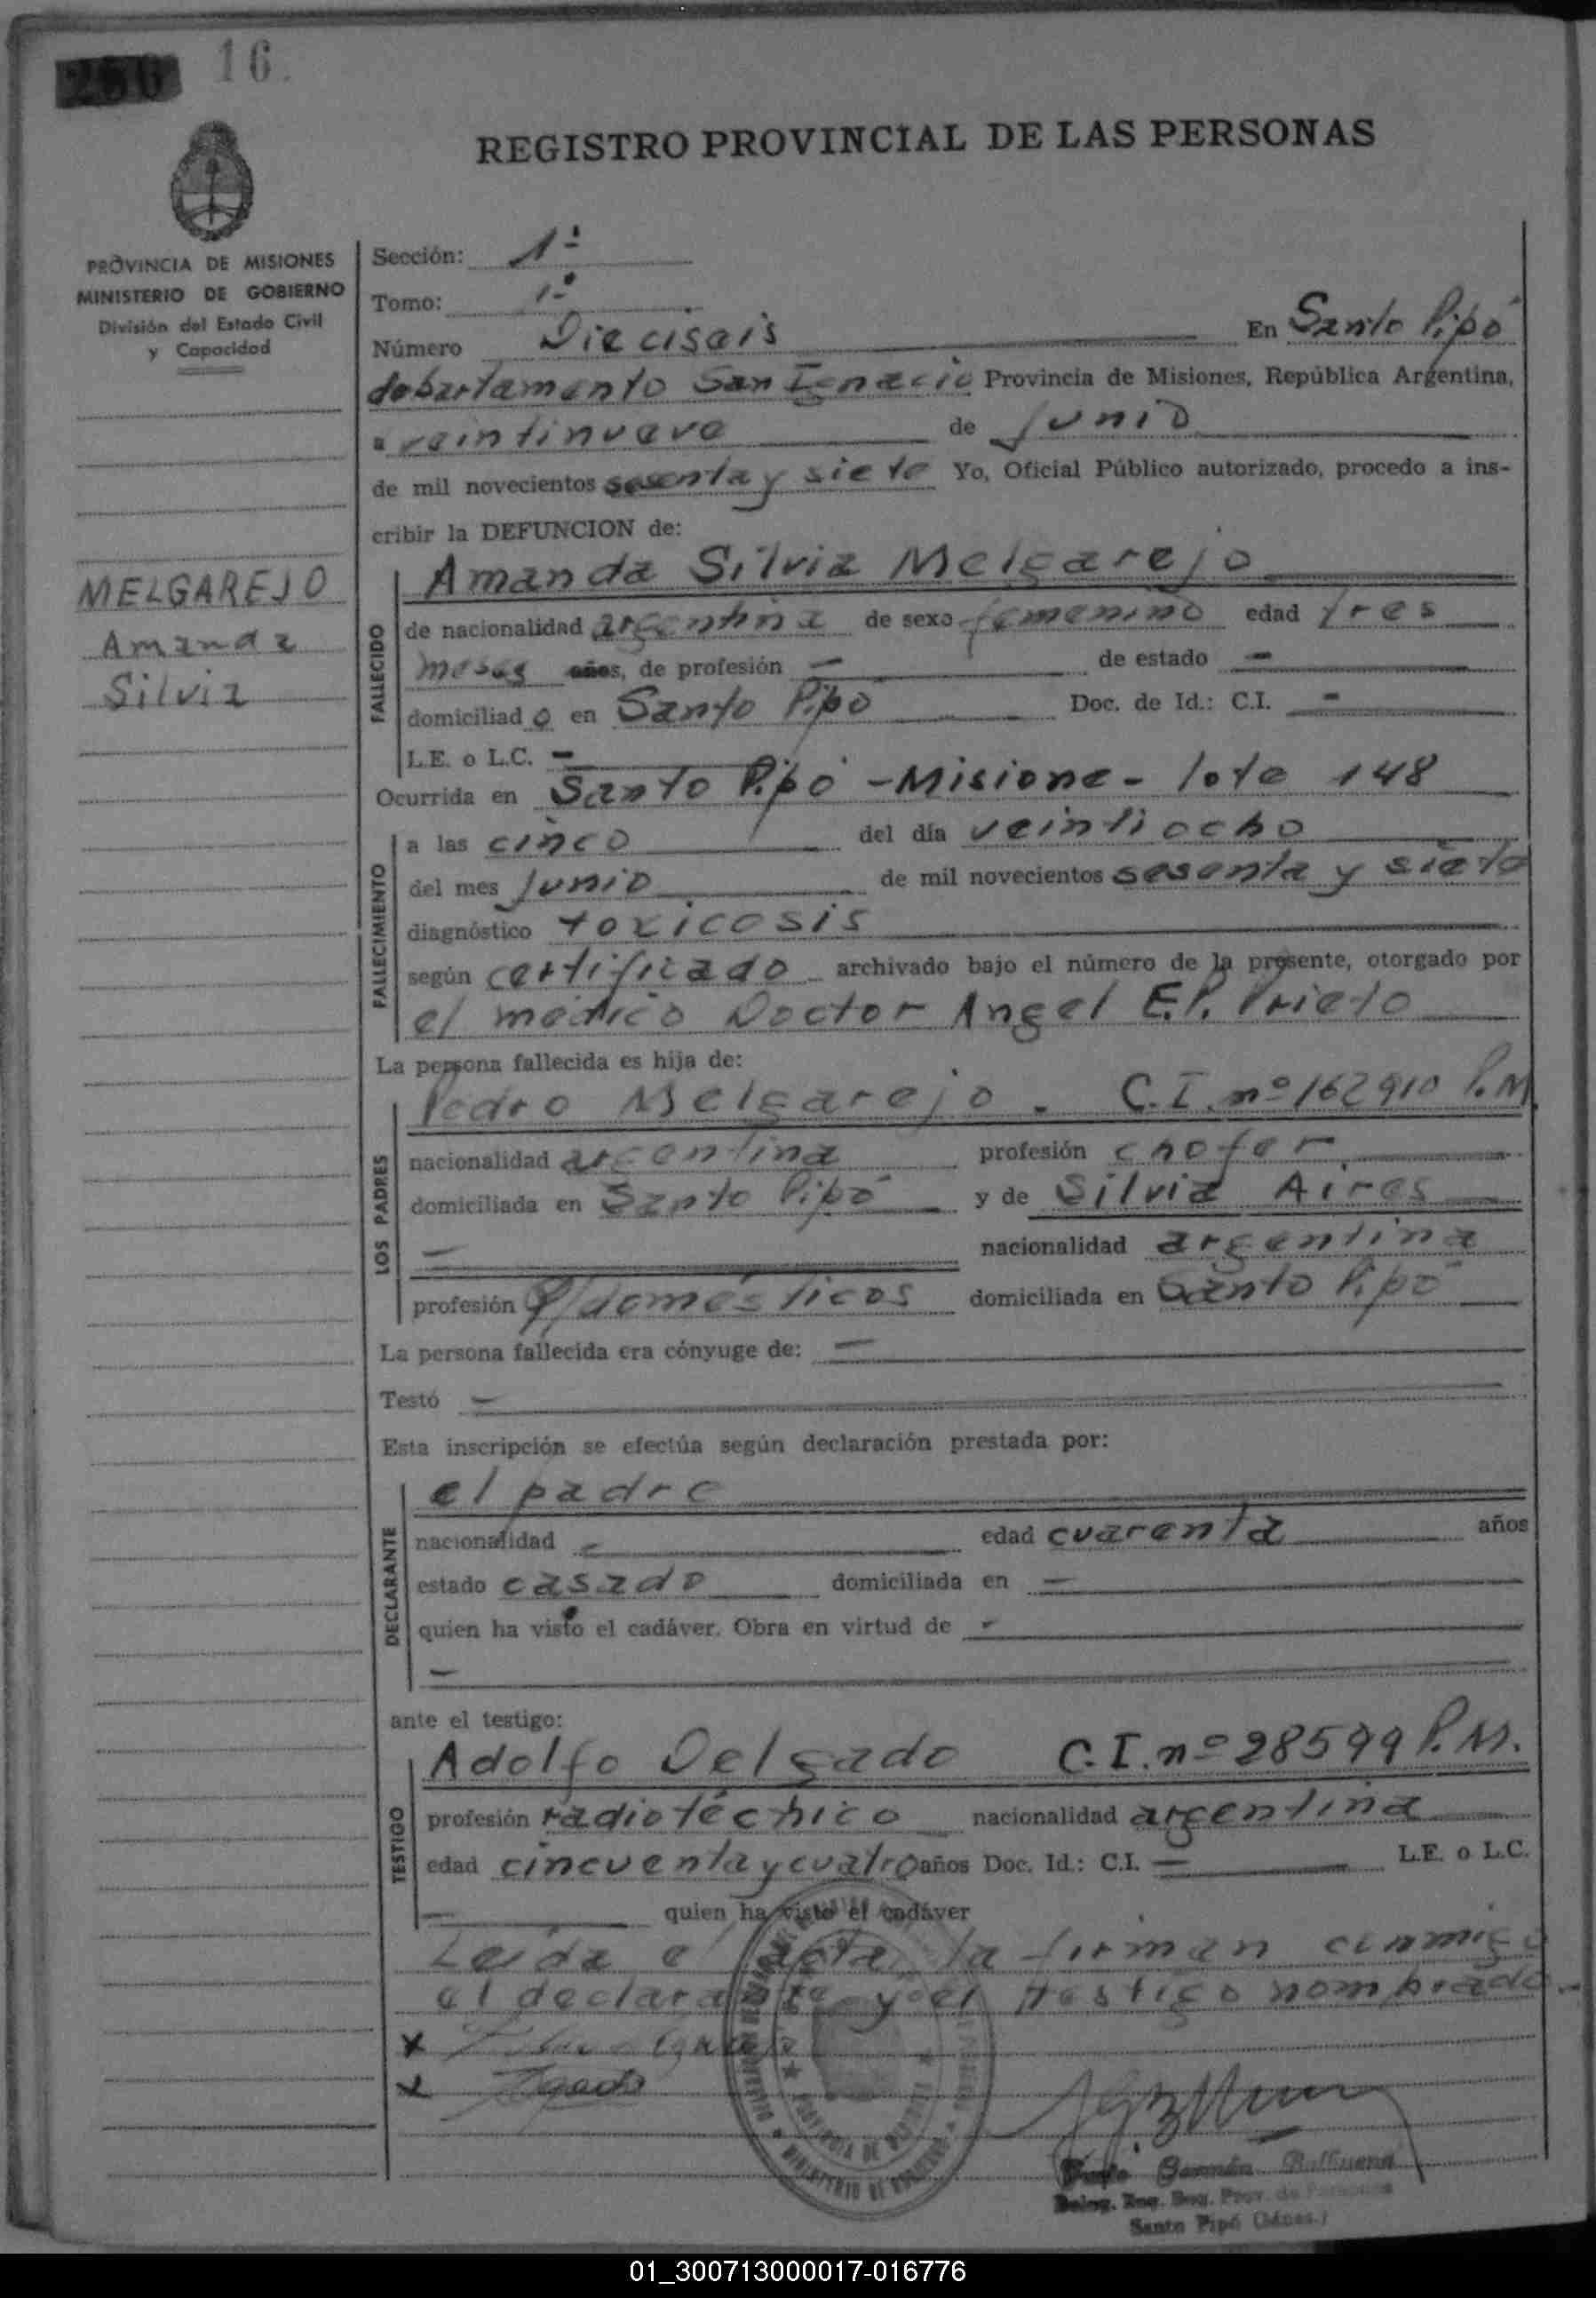 16.
REGISTRO PROVINCIAL DE LAS PERSONAS
PROVINCIA DE MISIONES
MINISTERIO DE GOBIERNO
División del Estado Civil
y Capacidad
MELGAREJO
Amanda
Silvia
Sección: 1ª
Tomo: 1º
Número Dieciseis En Santo Pipó
departamento San Ignacio Provincia de Misiones, República Argentina,
a veintinueve de Junio
de mil novecientos sesenta y siete Yo, Oficial Público autorizado, procedo a ins-
cribir la DEFUNCION de:
FALLECIDO
Amanda Silvia Melgarejo
de nacionalidad argentina de sexo femenino edad tres
meses años, de profesión — de estado —
domiciliad o en Santo Pipó Doc. de Id.: C.I. -
L.E. o L.C. -
Ocurrida en Santo Pipó - Misione - lote 148
FALLECIMIENTO
a las cinco del día veintiocho
del mes Junio de mil novecientos sesenta y siete
diagnóstico toxicosis
según certificado archivado bajo el número de la presente, otorgado por
el médico Doctor Angel E.P. Prieto
La persona fallecida es hija de:
LOS PADRES
Pedro Melgarejo. C.I. nº 162910 P.M.
nacionalidad argentina profesión chofer
domiciliada en Santo Pipó y de Silvia Aires
— nacionalidad argentina
profesión q/domésticos domiciliada en Santo Pipó
La persona fallecida era cónyuge de: —
Testó —
Esta inscripción se efectúa según declaración prestada por:
DECLARANTE
el padre
nacionalidad - edad cuarenta años
estado casado domiciliada en —
quien ha visto el cadáver. Obra en virtud de -
—
ante el testigo:
TESTIGO
Adolfo Delgado C.I. nº 28599 P.M.
profesión radiotéchico nacionalidad argentina
edad cincuenta y cuatro años Doc. Id.: C.I. — L.E. o L.C.
— quien ha visto el cadáver
Leida el acta, la firman conmigo
el declarante y el testigo nombrado.-
x
x
Germán Balbuena
Deleg. Reg. Prov. de
Santo Pipó (Mnes.)
01_300713000017-016776